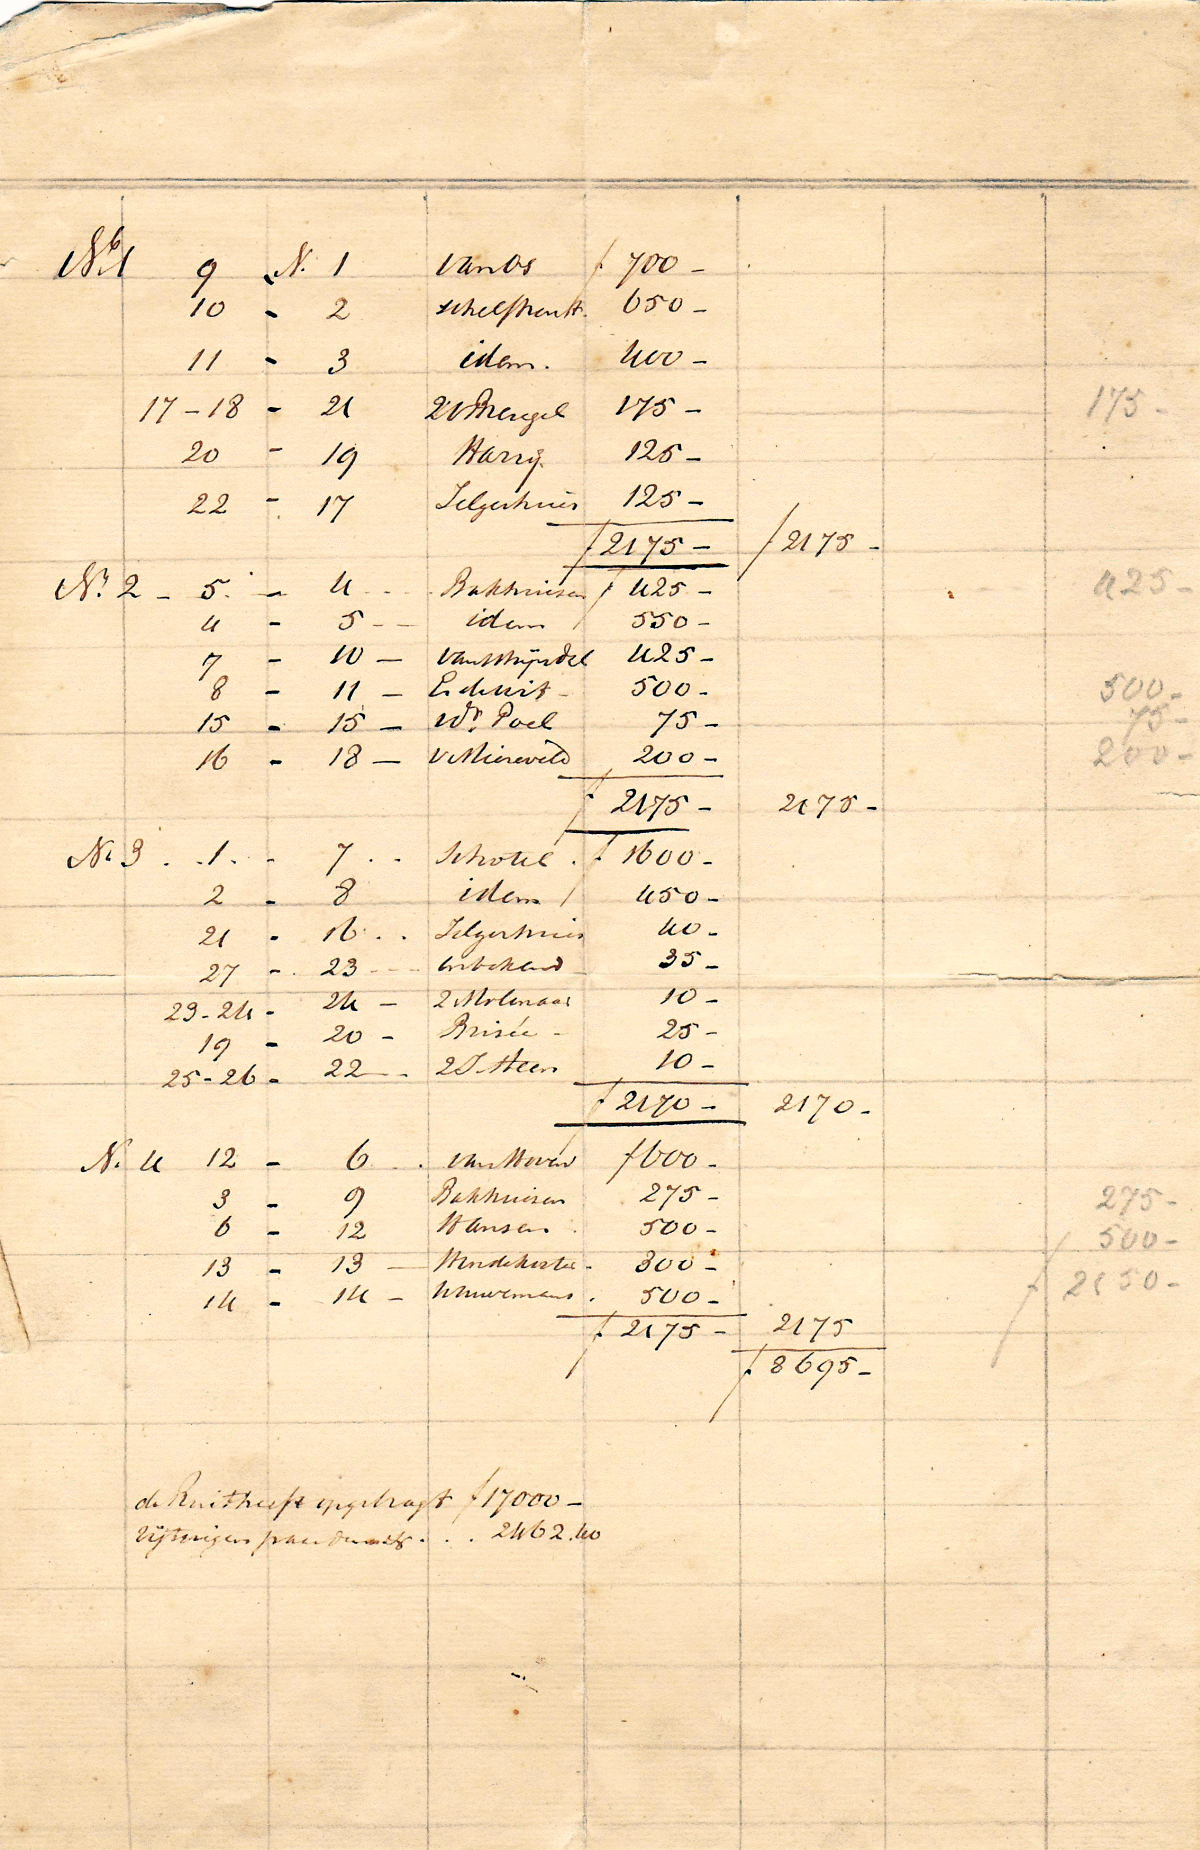 No 1 9 - N. 1 van Os f 700 -
10 - 2 Schelfhout. 650 -
11 - 3 idem. 400 -
17-18 - 21 2 v Brengel 175 - 175 -
20 - 19 Harry 125 -
22 - 17 Jelgerhuis 125 -
f 2175 - f 2175 -
No 2 - 5. - 4 Bakhuisen f 425 - 425 -
4 - 5 idem 550 -
7 - 10 - van Strijdel 425 -
8 - 11 - E. de Wit - 500 - 500 -
15 - 15 - Wr Poel 75 - 75 -
16 - 18 - v Miereveld 200 - 200 -
f 2175 - 2175 -
No 3 . 1 . - 7 . . Schotel . f 1600 -
2 - 8 idem 450 -
21 - 16 . . Jelgerhuis 40 -
27 - 23 onbekend 35 -
23-24 - 24 - 2 Molenaar 10 -
19 - 20 - Brisée - 25 -
25-26 - 22 2 J. Steen 10 -
f 2170 - 2170 -
N. 4 12 - 6 . van Hoven f 600 -
3 - 9 Bakhuisen 275 - 275 -
6 - 12 Hansen 500 - 500 -
13 - 13 Hondekoeter - 300 - f 2150 -
14 - 14 - Wouwermans . 500 -
f 2175 - 2175
f 8695 -
de heeft opgebragt f 17000 -
. . . 2462.40